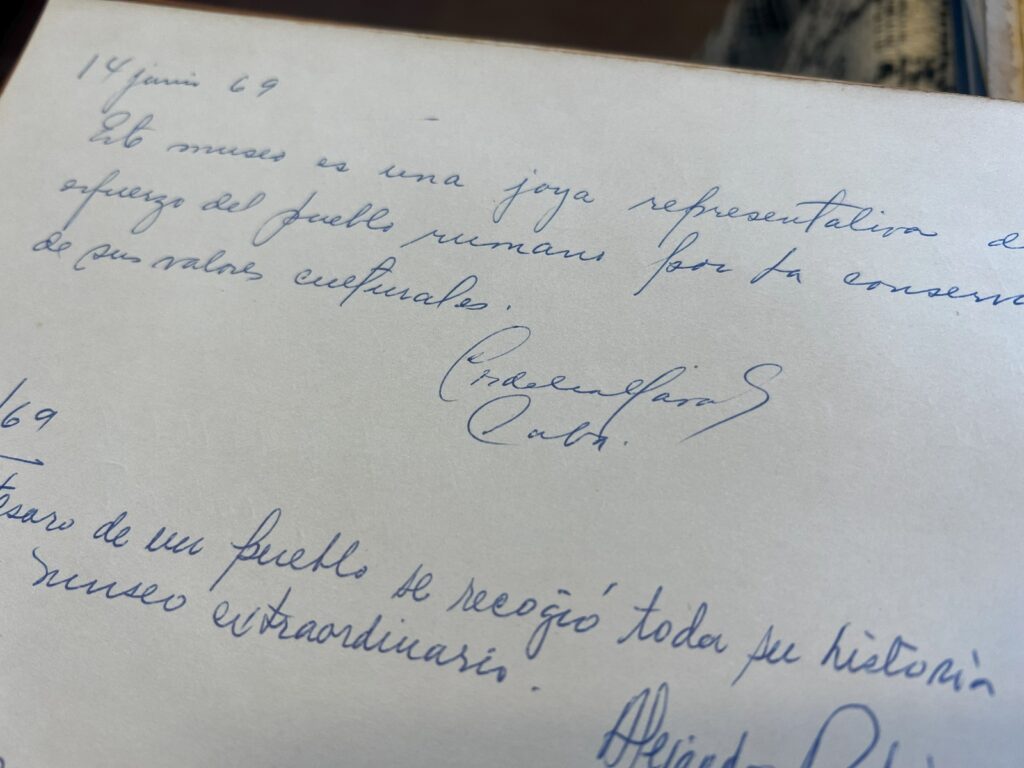 14 junio 69
Este museo es una joya representativa d
esfuerzo del pueblo rumano por la conserv
de sus valores culturales.
Cuba.
/69
tesoro de un pueblo se recogió toda su historia
museo extraordinario.
Alejandro